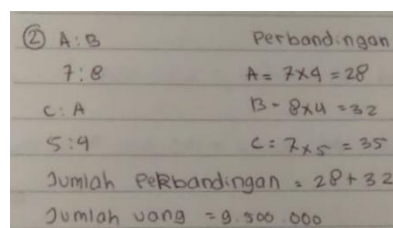 ② A : B Perbandingan
7 : 8 A = 7x4 = 28
C : A B = 8x4 = 32
5 : 4 C = 7x5 = 35
Jumlah Perbandingan = 28 + 32
Jumlah uang = 9.500.000